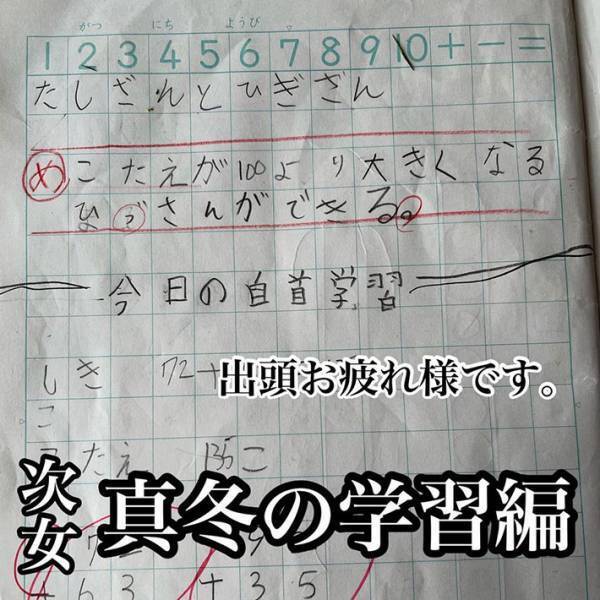 がつ にち ようび
1 2 3 4 5 6 7 8 9 10 + － =
たしざんとひきざん
め こたえが100より大きくなる
ひざさんができる。
今日の自首学習
しき 72+
出頭お疲れ様です。
こ
たえ 135こ
次女 真冬の学習編
7 2 9
+ 6 3 + 3 5